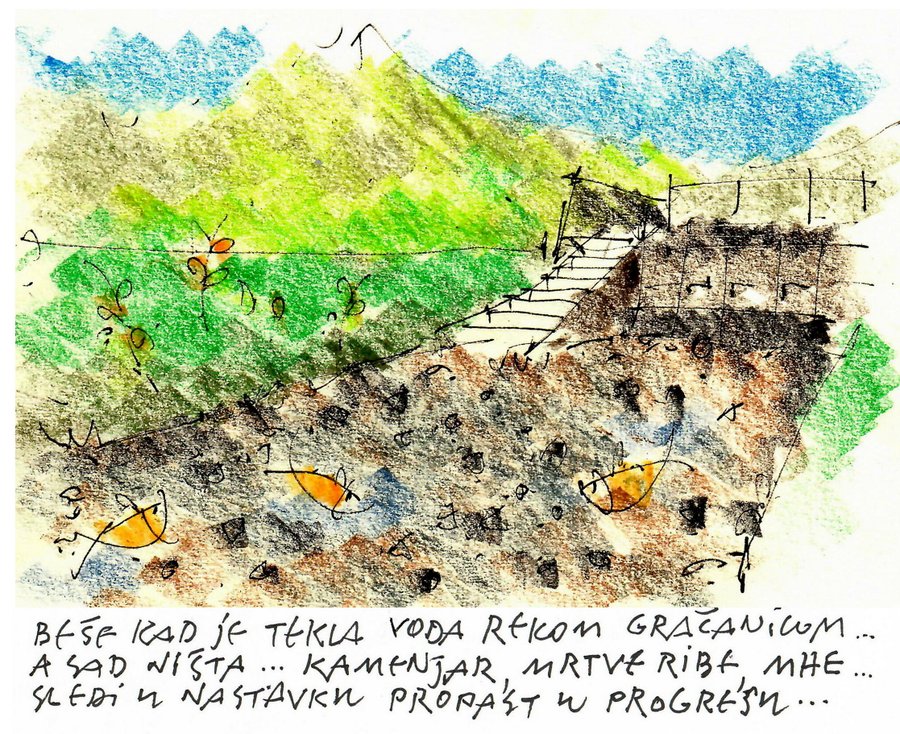 BEŠE KAD JE TEKLA VODA REKOM GRAČANICOM...
A SAD NIŠTA... KAMENJAR, MRTVE RIBE, MHE...
SLEDI U NASTAVKU PROPAST U PROGRESU...